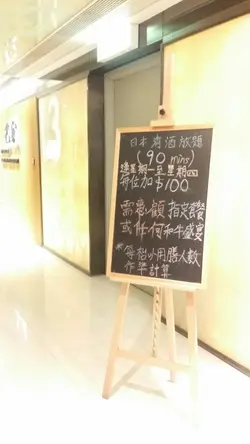 日本清酒放題
(90 mins)
逢星期一至星期四
每位加 $100
需惠顧 指定套餐
或任何和牛盛宴
*每枱以用膳人數
作準計算